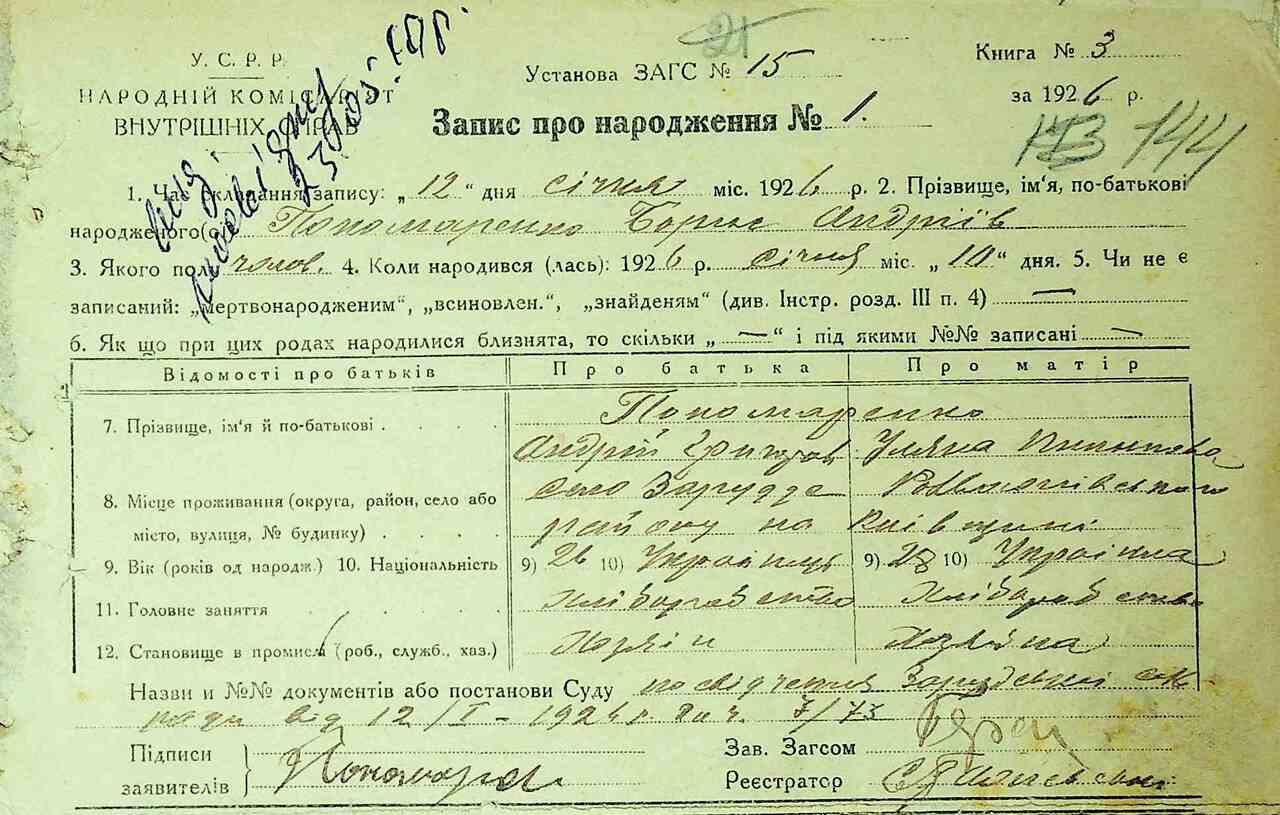 21
У. С. Р. Р.
НАРОДНІЙ КОМІСАРІЯТ
ВНУТРІШНІХ СПРАВ
Установа ЗАГС № 15
Книга № 3
за 1926 р.
Запис про народження № 1.
144
1. Час складання запису: „12“ дня січня міс. 1926 р. 2. Прізвище, ім'я, по-батькові
народженого(ої) Пономаренко Борис Андріїв
3. Якого полу чолов. 4. Коли народився (лась): 1926 р. січня міс. „10“ дня. 5. Чи не є
записаний: „мертвонародженим“, „всиновлен.“, „знайденям“ (див. Інстр. розд. III п. 4) —
6. Як що при цих родах народилися близнята, то скільки „—“ і під якими №№ записані —
Відомості про батьків Про батька Про матір
7. Прізвище, ім'я й по-батькові . . . . Пономаренко
Андрій Уляна
8. Місце проживання (округа, район, село або село Зарудде
місто, вулиця, № будинку) . . . . . району на Київщині
9. Вік (років од народж.) 10. Національність 9) 26 10) Українець 9) 28 10) Українка
11. Головне заняття . . . . . Хліборобство Хліборобство
12. Становище в промислі (роб., служб., хаз.) Хозяїн Хозяйка
Назви и №№ документів або постанови Суду посвідчення Зарудської сіль
ради від 12/I – 192 р. за ч. 7/73
Підписи
заявителів } Пономаре
Зав. Загсом
Реєстратор